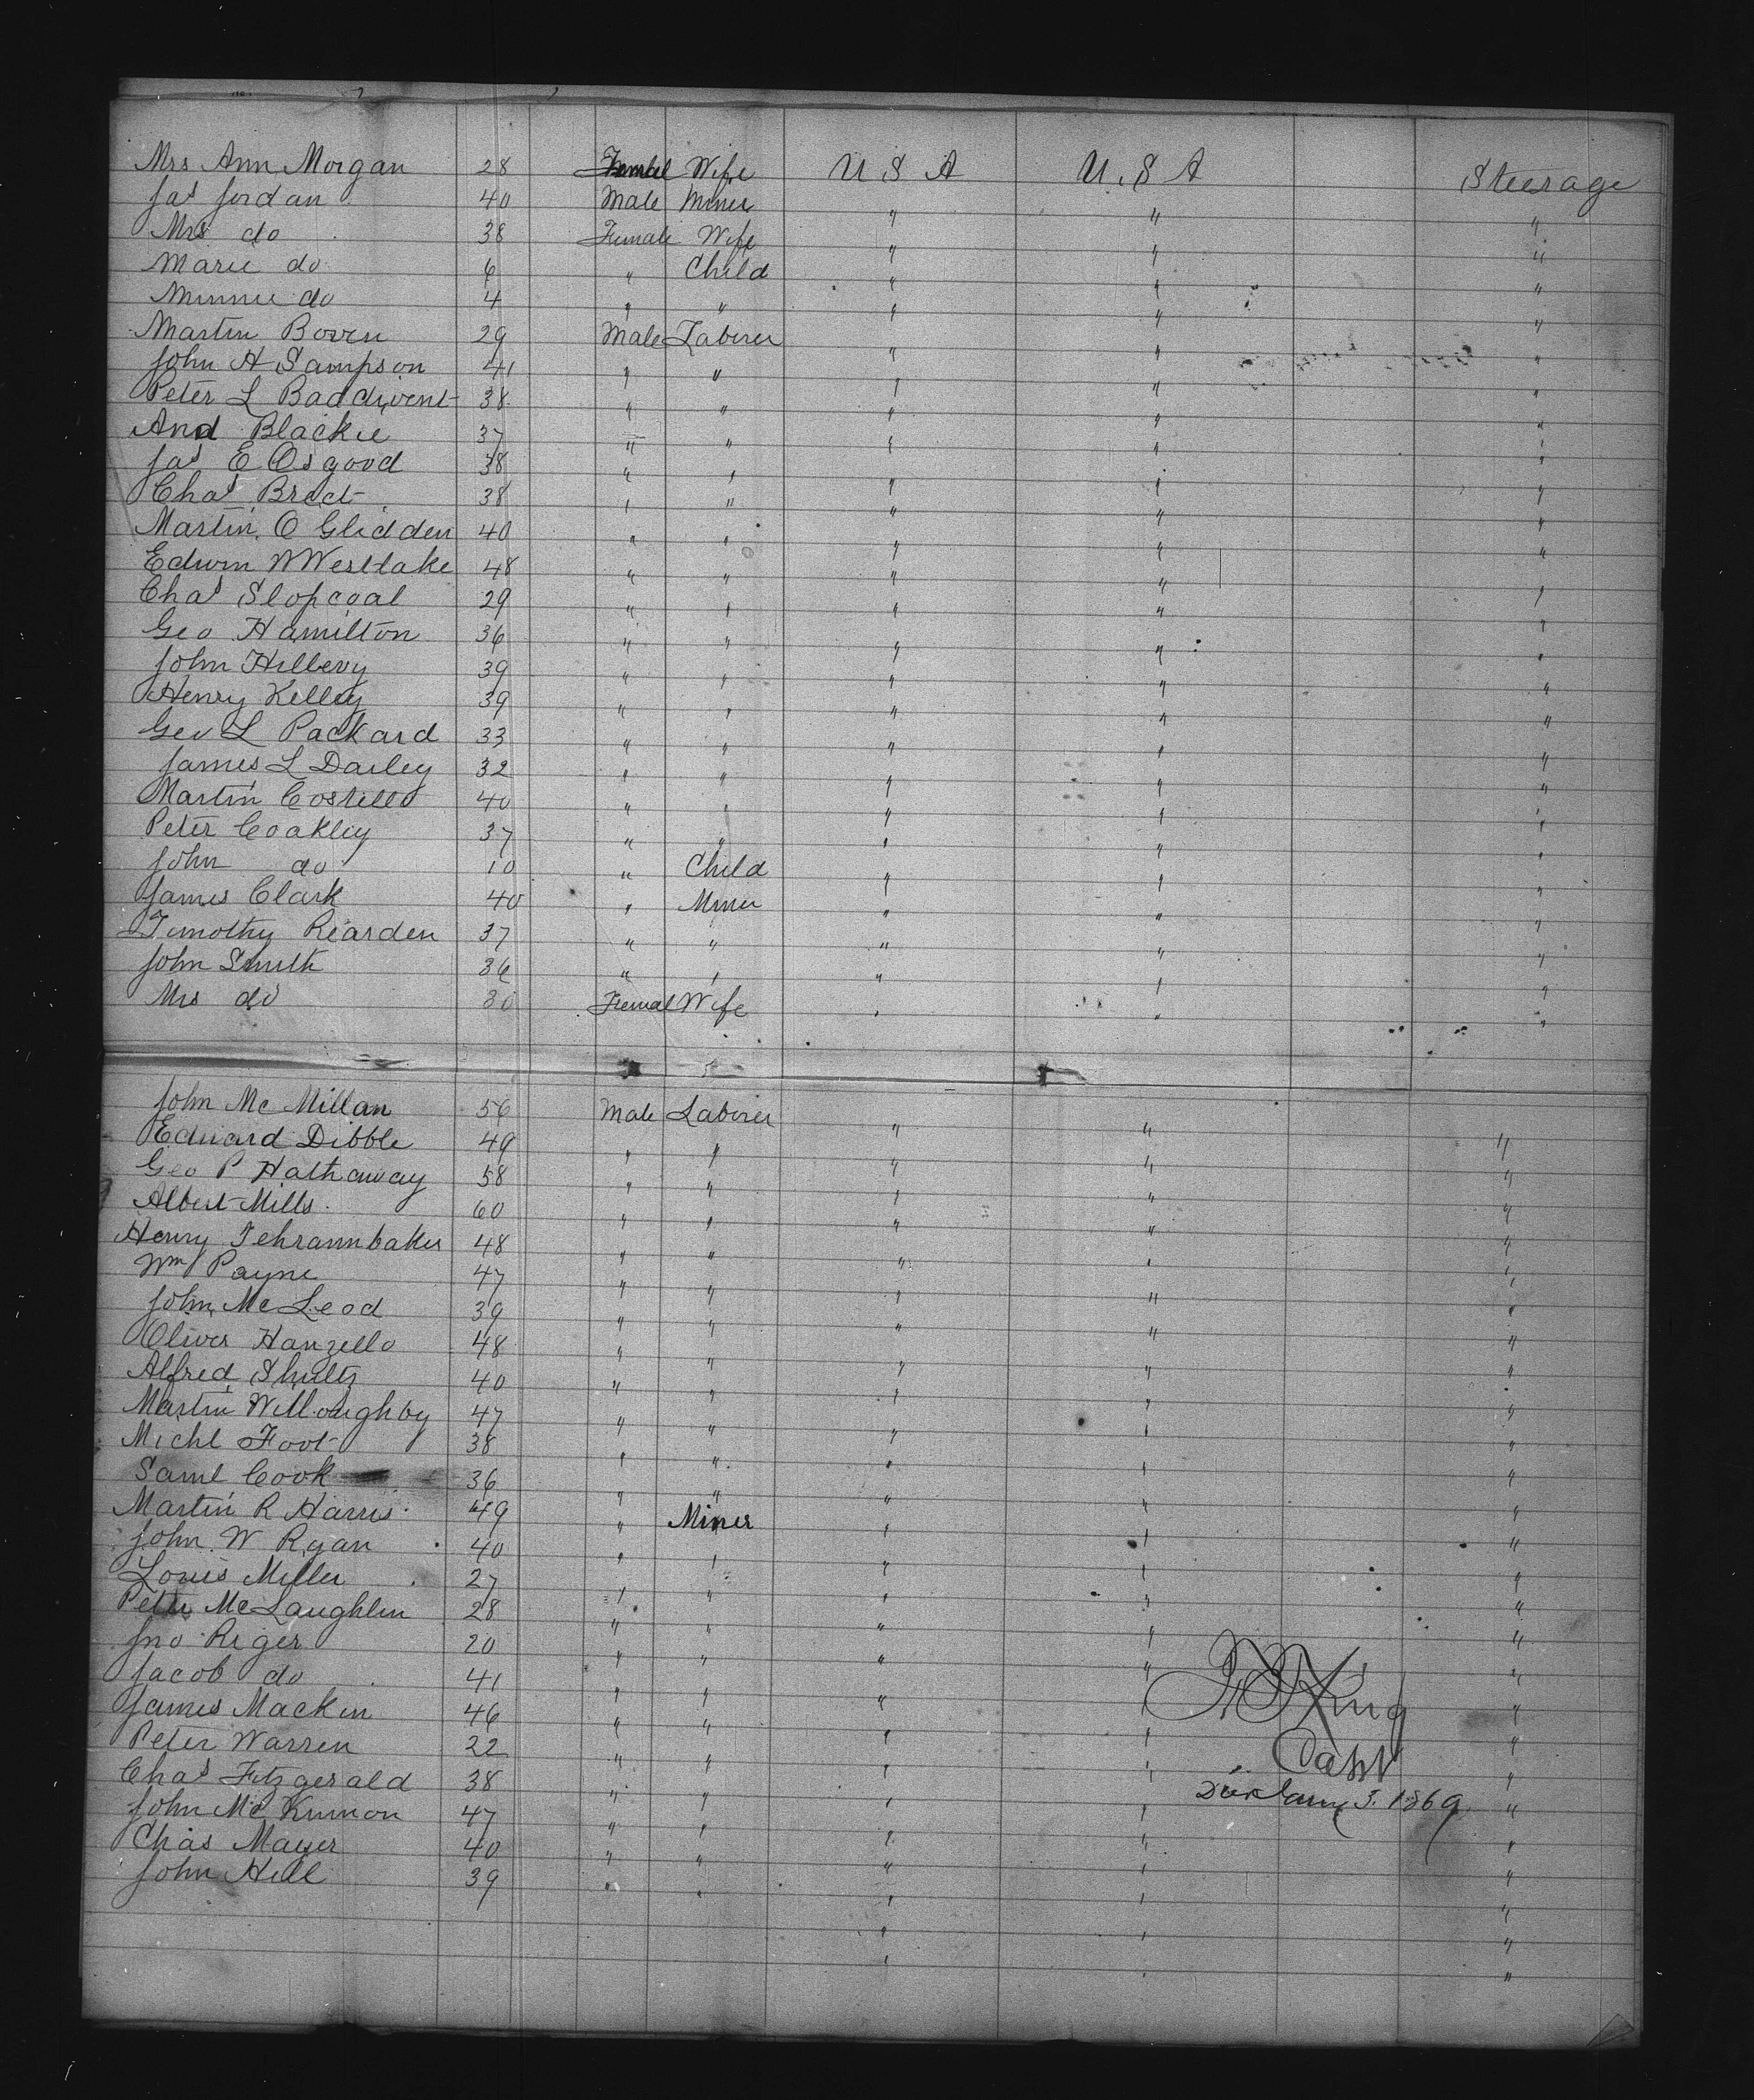 Mrs Ann Morgan 28 Femal Wife U S A U. S A Steerage
Jas Jordan 40 Male Miner " " "
Mrs do 38 Female Wife " " "
Marie do 6 " Child " " "
Minnie do 4 " " " " "
Martin Boven 29 Male Laborer " " "
John H Sampson 41 " " " " "
Peter L 38 " " " " "
And Blackie 37 " " " " "
Jas E Osgood 38 " " " " "
Chas 38 " " " " "
Martin O Glidden 40 " " " " "
Edwin W Westlake 48 " " " " "
Chas Slopcoal 29 " " " " "
Geo Hamilton 36 " " " " "
John 39 " " " " "
Henry Kelley 39 " " " " "
Geo L Packard 33 " " " " "
James L Dailey 32 " " " " "
Martin Costello 40 " " " " "
Peter Coakley 37 " " " " "
John do 10 " Child " " "
James Clark 40 " Miner " " "
Timothy Riarden 37 " " " " "
John Smith 36 " " " " "
Mrs do 30 Femal Wife " " "
John Mc Millan 56 Male Laborer " " "
Edward Dibble 49 " " " " "
Geo P Hathaway 58 " " " " "
Albert Mills 60 " " " " "
Henry Fehrannbaker 48 " " " " "
Wm Payne 47 " " " " "
John McLeod 39 " " " " "
Oliver Hanzello 48 " " " " "
Alfred Shultz 40 " " " " "
Martin Willoughby 47 " " " " "
Michl Foot 38 " " " " "
Saml Cook 36 " " " " "
Martin R Harris 49 " Miner " " "
John W Ryan 40 " " " " "
Louis Miller 27 " " " " "
Peter McLaughlin 28 " " " " "
Jno Riger 20 " " " " "
Jacob do 41 " " " " "
James Mackin 46 " " " " "
Peter Warren 22 " " " " "
Chas Fitzgerald 38 " " " " "
John Mc Kinnon 47 " " " " "
Chas Mayer 40 " " " " "
John Hill 39 " " " " "
King
Capt
3. 1869